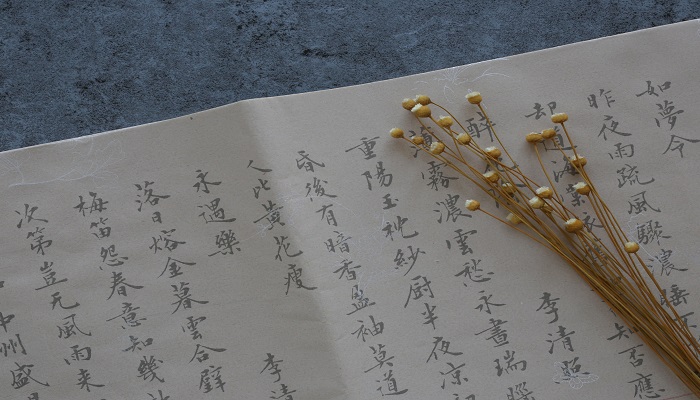 如夢令
昨夜雨疏風驟濃睡不
却道海 知否應
醉 李清照
薄霧濃雲愁永晝瑞腦
重陽玉枕紗厨半夜凉初
昏後有暗香盈袖莫道
人比黃花瘦
永遇樂 李清
落日熔金暮雲合璧
梅笛怨春意知幾
次第豈无風雨來
中州盛